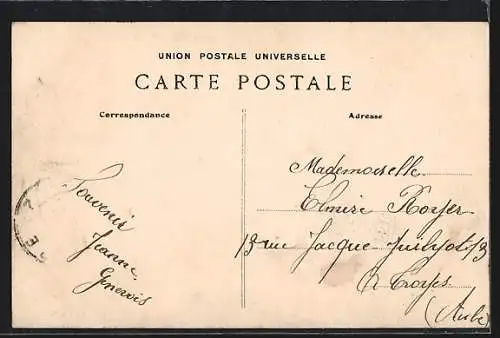 UNION POSTALE UNIVERSELLE
CARTE POSTALE
Correspondance
Adresse
Souvenir
Jeanne
Mademoiselle
Elmire Royer
13 rue Jacque 13
à Troyes
(Aube)